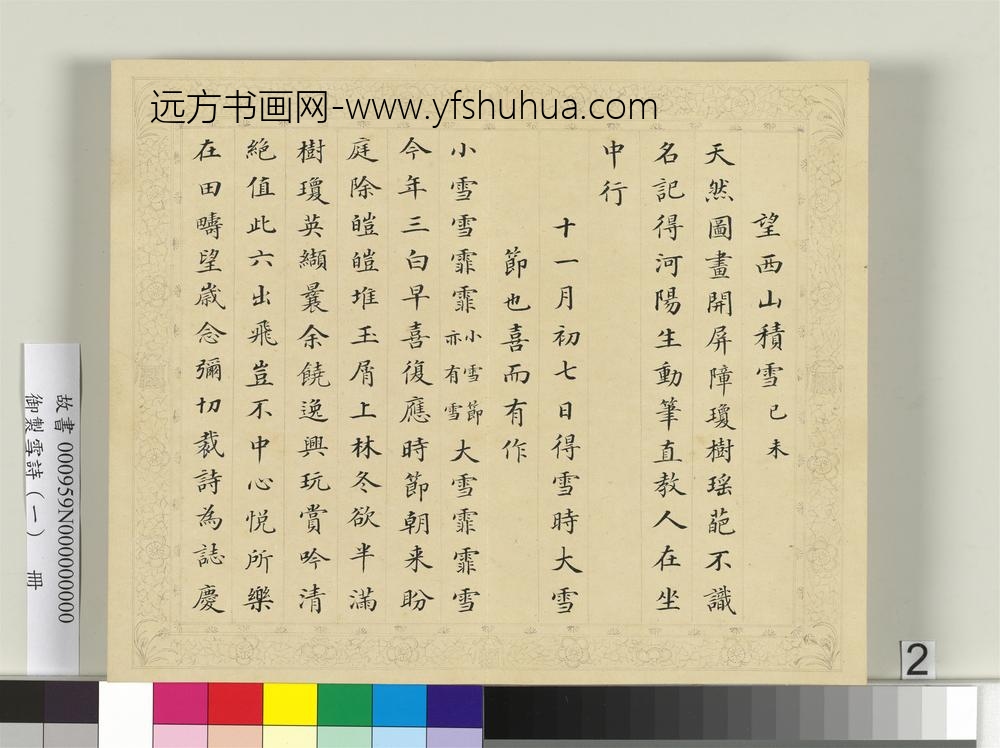 远方书画网-www.yfshuhua.com
望西山積雪己未
天然圖畫開屏障瓊樹瑶葩不識
名記得河陽生動筆直教人在坐
中行
十一月初七日得雪時大雪
節也喜而有作
小雪雪霏霏小雪節亦有雪大雪霏霏雪
今年三白早喜復應時節朝来盼
庭除皚皚堆玉屑上林冬欲半滿
樹瓊英纈曩余饒逸興玩賞吟清
絶值此六出飛豈不中心悦所樂
在田疇望歲念彌切裁詩為誌慶
故書 000959N000000000
御製雪詩(一) 冊
2